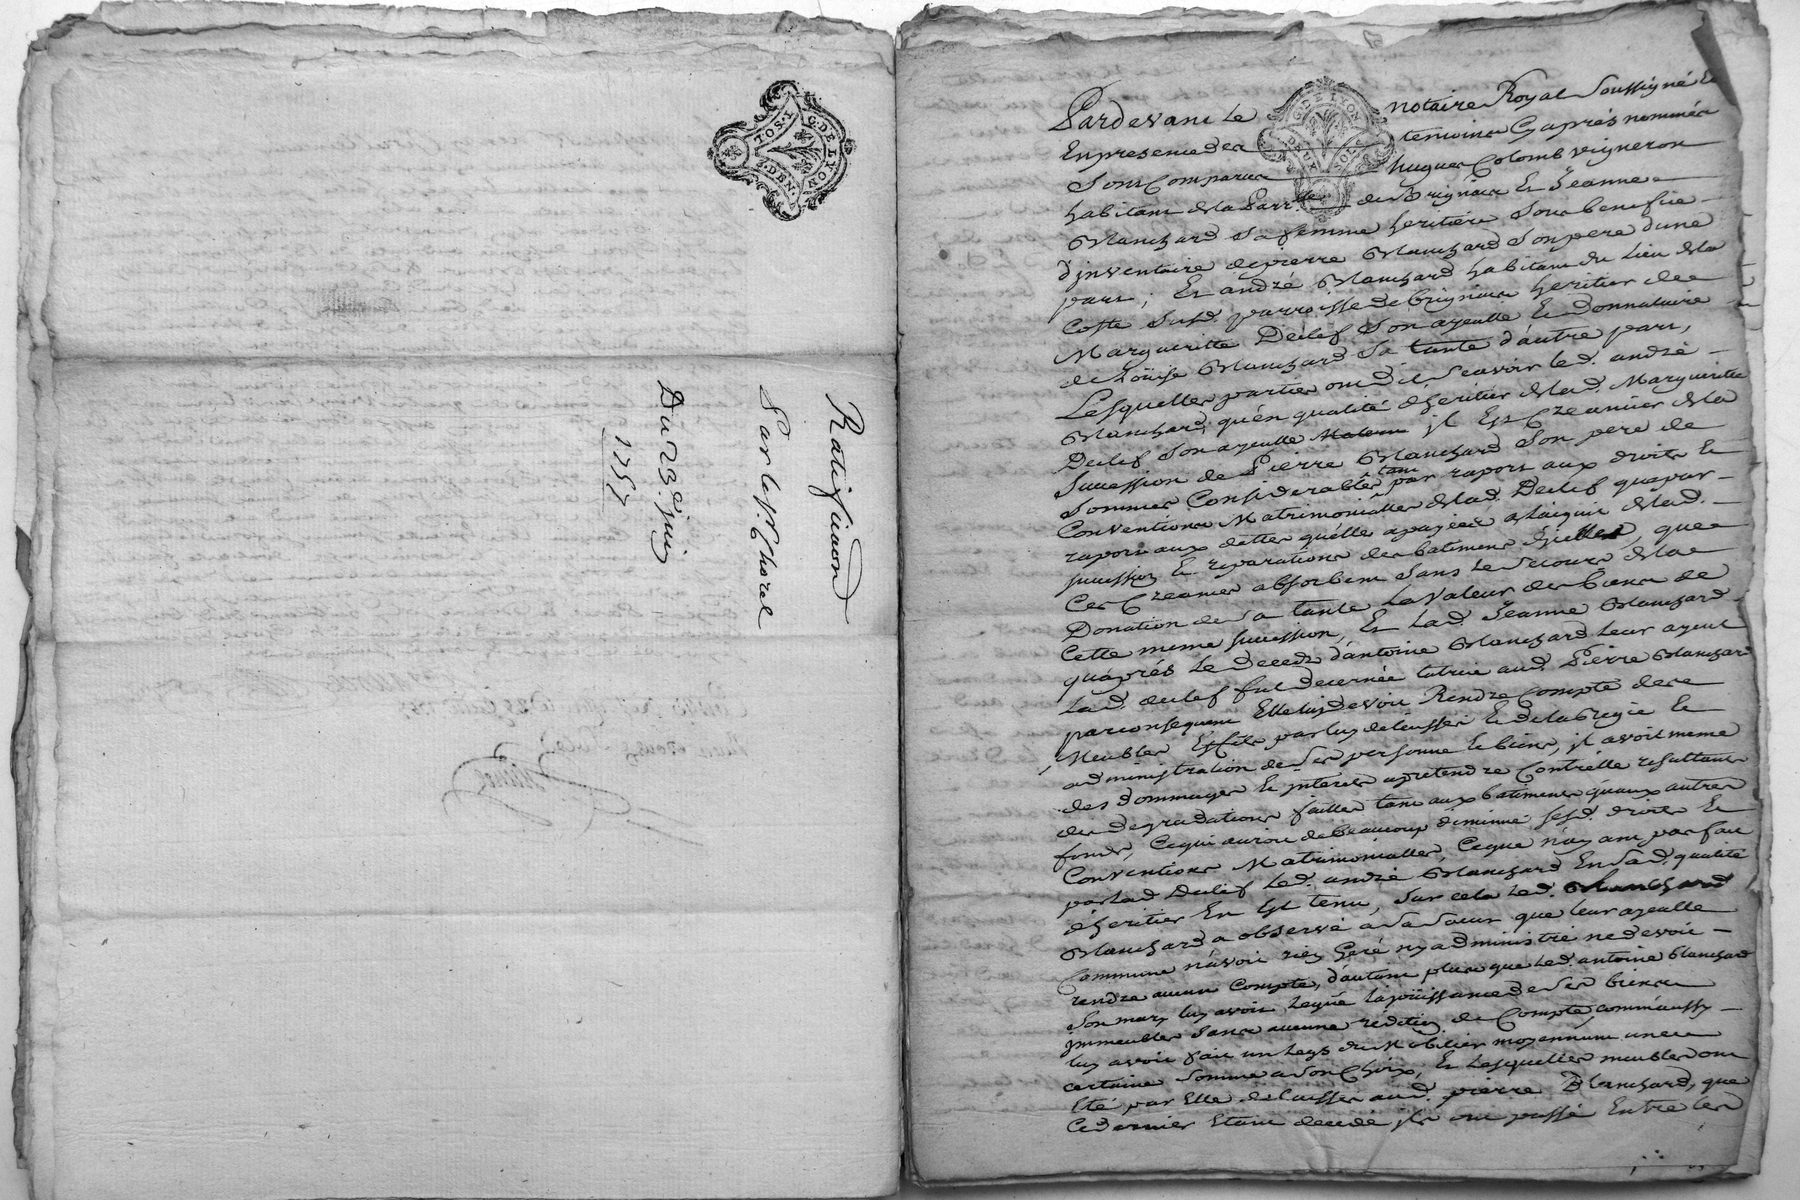 1 SOL 4 DEN.
G. DE LYON
Ratification
Par le Sr. Chorel
Du 23e. juin
1757
G. DE LYON
DEUX SOLS
Pardevant Le notaire Royal Soussigné Et
En presence des temoins Cy aprés nommés
Sont Comparus hugues Colomb vigneron
habitant de la Parr.sse de Brignais Et Jeanne
Blanchard Sa femme heritière Sous benefice
d'jnventaire de pierre Blanchard Son pere d'une
part; Et andré Blanchard habitant du Lieu de la
Coste Susd. parroisse de brignais heritier de
Margueritte Declef Son ayeulle Et donnataire
de Loüise Blanchard Sa tante d'autre part,
Lesquelles parties ont dit, Scavoir Led. andré
Blanchard, qu'en qualité d'heritier de lad. Margueritte
Declef Son ayeulle il Est Creancier de la
Succession de Pierre Blanchard Son pere de
Sommes Considerables tant par raport aux droits Et
Conventions Matrimonialles de lad. Declef que par
raport aux dettes qu'elle a payées a L'acquit de lad.
succession Et reparations des batiments d'jcelles, que
Ces Creances absorbent Sans Le Secours de la
Donation de Sa tante La valeur des biens de
Cette meme succession, Et Lad. Jeanne Blanchard
qu'aprés Le decedz d'antoine Blanchard Leur ayeul
Lad. declef fut decernée tutrice aud. Pierre Blanchard
par consequent Elle luy devoit Rendre Compte des
Meubles Effets par luy delaissés Et de la regie Et
administration de Ses personne Et biens, jl avoit meme
des dommages Et jnterets a pretendre Contr'elle resultants
des degradations faittes tant aux batiments qu'aux autres
fonds, Ce qui auroit de beaucoup diminué sesd. droits Et
Conventions Matrimonialles, Ce que n'ayant pas fait
par lad Declef Led. andré Blanchard En Sad. qualité
d'heritier En Est tenu, Sur cela Led.
Blanchard a observé a Sa Soeur que leur ayeulle
Commune n'avoit rien Geré ny administré ne devoit
rendre aucun Compte, d'autant plus que Led. antoine Blanchard
Son mary luy avoit Legué La joüissance de Ses biens
jmmeubles Sans aucune rédition de Compte, comm'aussy
luy avoit fait un Legs du Mobilier moyennant une
certaine Somme a Son Choix, Et Lesquelles meubles ont
Eté par Elle delaissés aud. pierre Blanchard, que
Ce dernier Etant decedé jls ont passé Entre Les